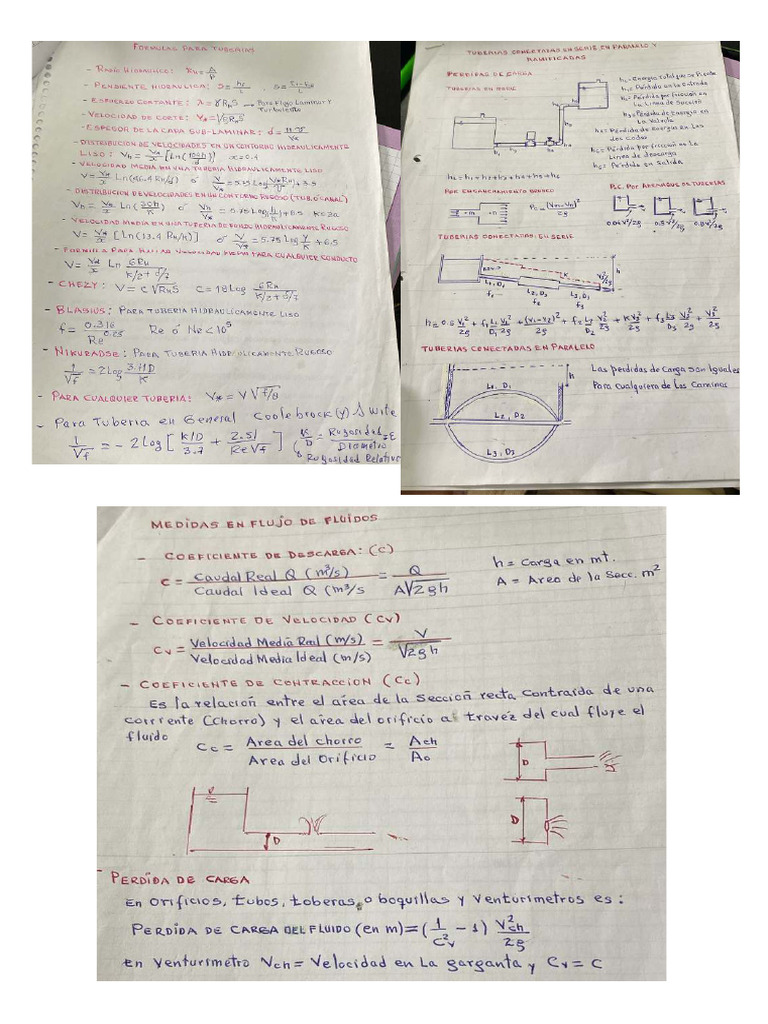 FORMULAS PARA TUBERIAS
- RADIO HIDRAULICO: RH = A/P
- PENDIENTE HIDRAULICA: S = hf/L
- ESFUERZO CORTANTE: → Para flujo Laminar y Turbulento
- VELOCIDAD DE CORTE: V* = √gRHS
- ESPESOR DE LA CAPA SUB-LAMINAR:
- DISTRIBUCION DE VELOCIDADES EN UN CONTORNO HIDRAULICAMENTE
LISO: x = 0.4
- VELOCIDAD MEDIA EN UNA TUBERIA HIDRAULICAMENTE LISO
- DISTRIBUCION DE VELOCIDADES EN UN CONTORNO RUGOSO (TUB. O CANAL)
- VELOCIDAD MEDIA EN UNA TUBERIA DE FONDO HIDRAULICAMENTE RUGOSO
PARA CUALQUIER CONDUCTO
V = V*/x Ln 6RH / K/2 + δ/7
- CHEZY: V = C√RHS C = 18 Log 6RH / K/2 + δ/7
- BLASIUS: PARA TUBERIA HIDRAULICAMENTE LISO
f = 0.316 / Re^0.25 Re ó NR < 10^5
- NIKURADSE: PARA TUBERIA HIDRAULICAMENTE RUGOSO
1/√f = 2 Log 3.71D/K
- PARA CUALQUIER TUBERIA: V* = V √f/8
- Para Tuberia en General Coolebrock (y) White
1/√f = -2 Log [ K/D / 3.7 + 2.51 / Re√f ] K/D = Rugosidad / Diametro = E
Rugosidad Relativa
TUBERIAS CONECTADAS EN SERIE EN PARALELO Y
RAMIFICADAS
PERDIDAS DE CARGA
TUBERIAS EN SERIE
h1 = Perdida en la Entrada
h2 = Perdida por friccion en
La Linea de Succión
h3 = Perdida de Energia en
La Valvula
h4 = Perdida de Energia en Los
dos Codos
h5 = Perdida por friccion en La
Linea de descarga
h6 = Perdida en Salida
POR ENSANCHAMIENTO BRUSCO
Pc = (V1-V2)² / 2g
P.C. Por ADEMAQUE DE TUBERIAS
0.04V²/2g 0.5V²/2g 0.8V²/2g
TUBERIAS CONECTADAS EN SERIE
L1, D1 f1
L2, D2 f2
L3, D3 f3
TUBERIAS CONECTADAS EN PARALELO
Las perdidas de Carga son Iguales
Para cualquiera de Los Caminos
h
L1, D1
L2, D2
L3, D3
MEDIDAS EN FLUJO DE FLUIDOS
- COEFICIENTE DE DESCARGA: (C)
C = Caudal Real Q (m³/s) / Caudal Ideal Q (m³/s = Q / A√2gh
h = Carga en mt.
A = Area de la Secc. m²
- COEFICIENTE DE VELOCIDAD (CV)
CV = Velocidad Media Real (m/s) / Velocidad Media Ideal (m/s) = V / √2gh
- COEFICIENTE DE CONTRACCION (Cc)
Es la relación entre el área de la Sección recta contraída de una
corriente (chorro) y el área del orificio a través del cual fluye el
fluido
Cc = Area del chorro / Area del Orificio = Ach / Ao
D
D
D
- PERDIDA DE CARGA
En orificios, tubos, toberas, o boquillas y Venturímetros es:
PERDIDA DE CARGA DEL FLUIDO (en m) = (1/C²v - 1) V²ch / 2g
en venturímetro Vch = Velocidad en La garganta y Cv = C